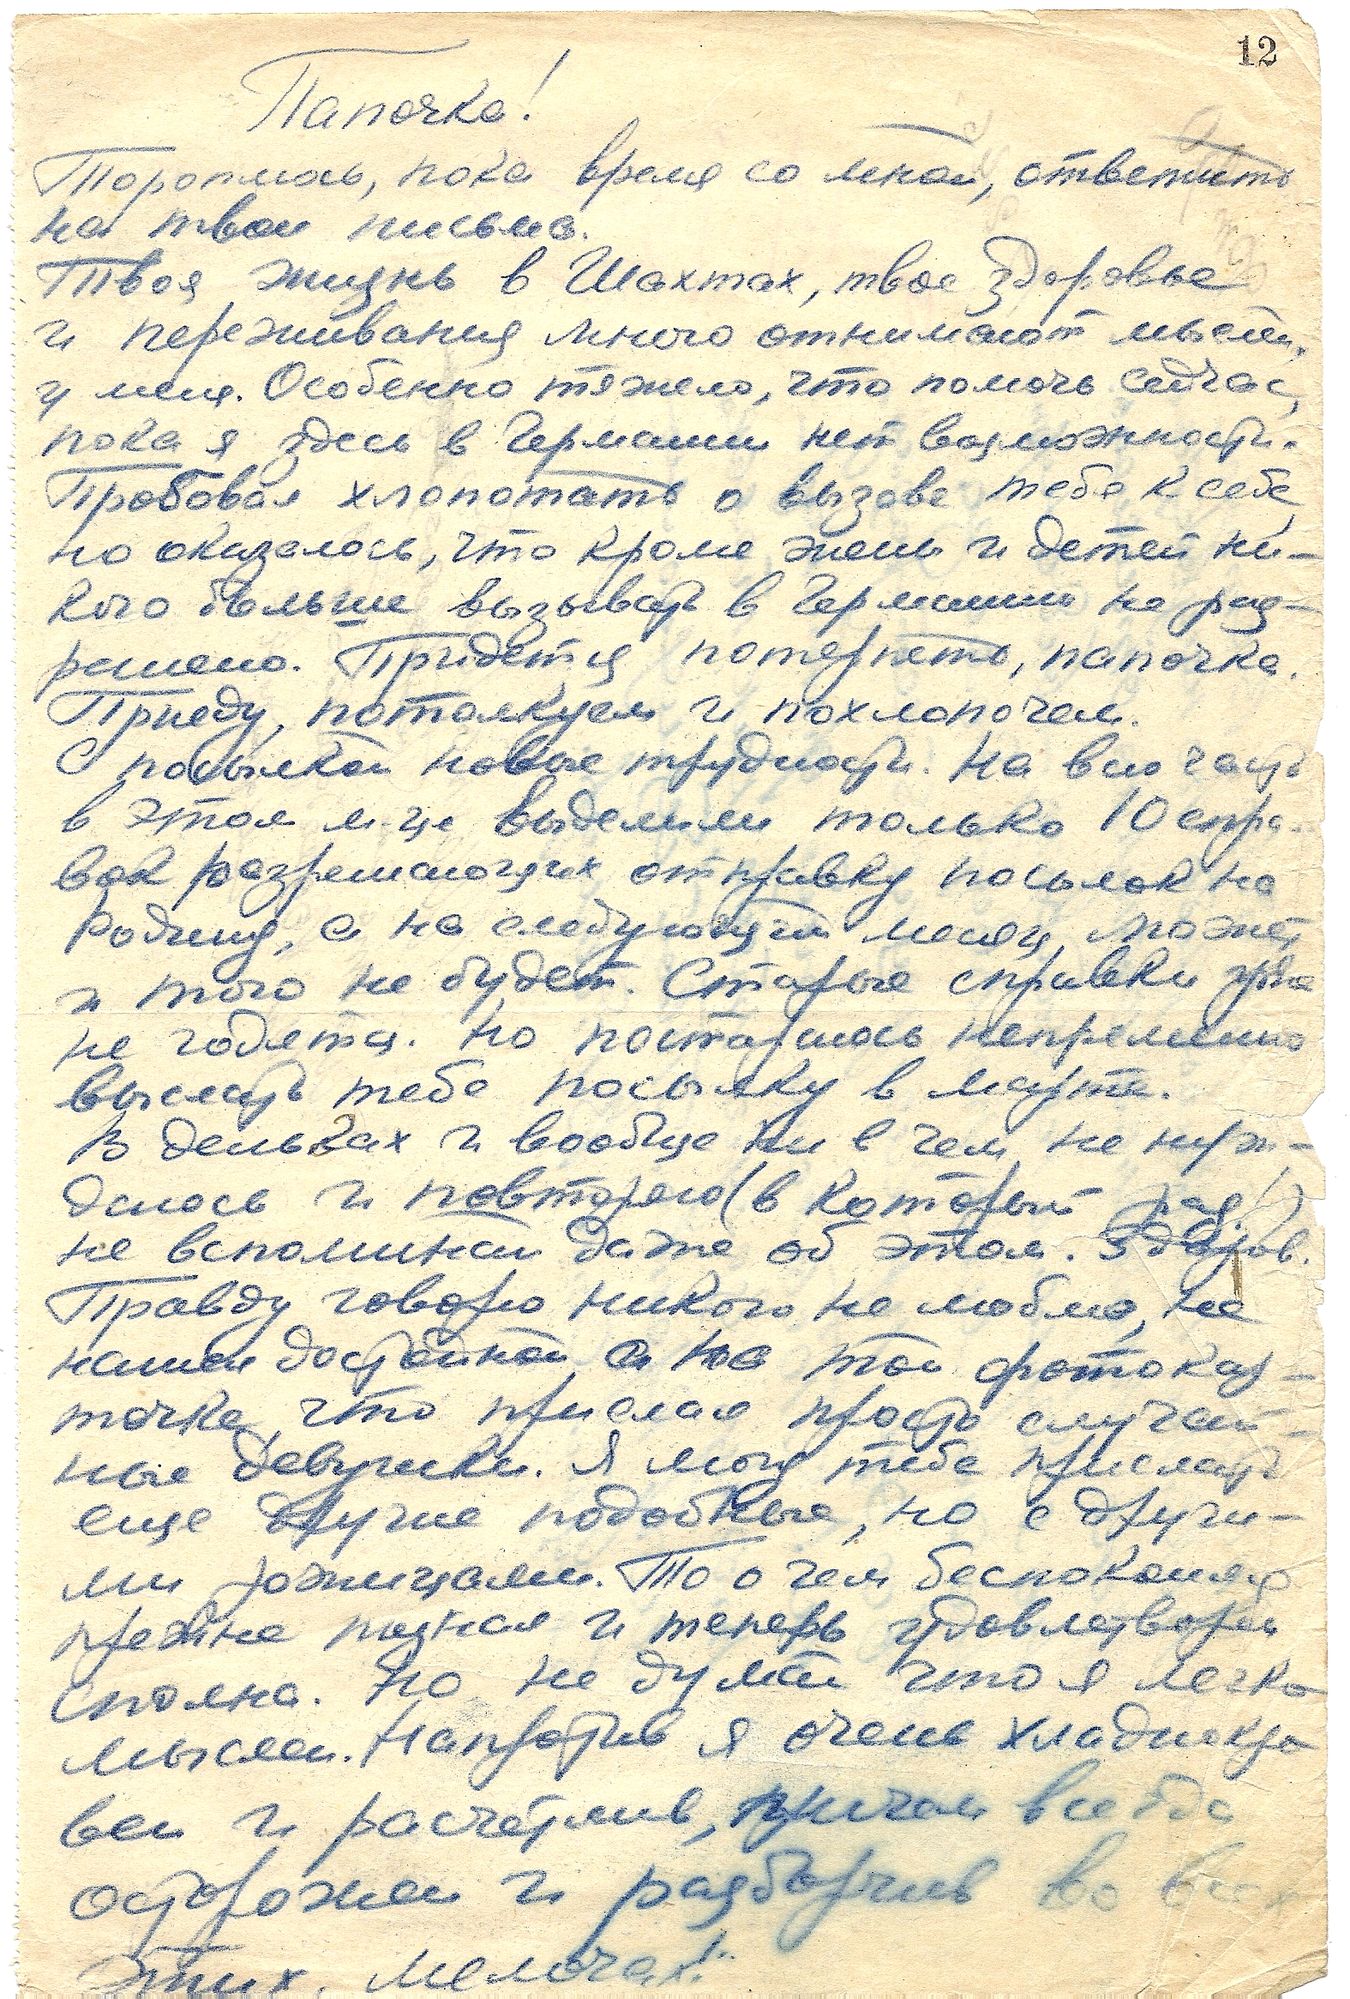 12
Папочка!
Тороплюсь, пока время со мной, ответить
на твои письма.
Твоя жизнь в Шахтах, твое здоровье
и переживания много отнимают мыслей
у меня. Особенно тяжело, что помочь сейчас,
пока я здесь в Германии нет возможности.
Пробовал хлопотать о вызове тебя к себе,
но оказалось, что кроме жены и детей ни-
кого больше вызывать в Германию не раз-
решено. Придется потерпеть, папочка.
Приеду, потолкуем и похлопочем.
С посылкой новые трудности. На всю часть
в этом м-це выделили только 10 спра-
вок разрешающих отправку посылок на
Родину, а на следующий месяц, может
и того не будет. Старые справки уже
не годятся. Но постараюсь непременно
выслать тебе посылку в марте.
В деньгах и вообще ни в чем не нуж-
даюсь и повторяю (в который раз!)
не вспоминай даже об этом. Здоров.
Правду говорю никого не люблю, не
нашел достойной, а на той фотокар-
точке, что прислал просто случай-
ные девушки. Я могу тебе прислать
еще другие подобные, но с други-
ми рожицами. То о чем беспокоился
прежде познал и теперь удовлетворен
сполна. Но не думай что я легко
мыслен. Напротив я очень хладнокро
вен и расчётлив, причем всегда
осторожен и разборчив во всех
этих мелочах!